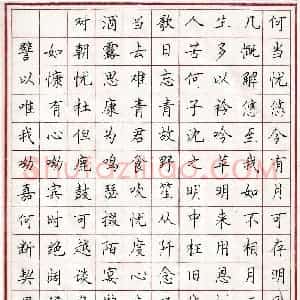 对酒当歌人生几何
譬如朝露去日苦多慨当
以慷忧思难忘何以解忧
唯有杜康青青子衿悠悠
我心但为君故沈吟至今
呦呦鹿鸣食野之苹我有
嘉宾鼓瑟吹笙明明如月
何时可掇忧从中来不可
断绝越陌度阡枉用相存
契阔谈宴心念旧恩月明